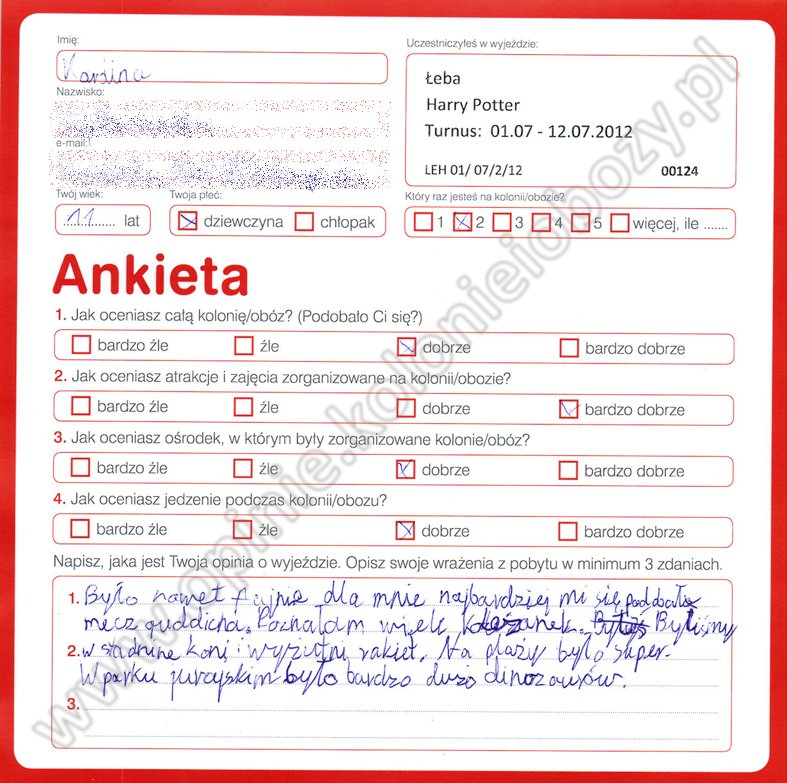 Imię:
Karina
Uczestniczyłeś w wyjeździe:
Łeba
Harry Potter
Turnus: 01.07 - 12.07.2012
LEH 01/ 07/2/12 00124
Nazwisko:
e-mail:
Twój wiek: Twoja płeć: Który raz jesteś na kolonii/obozie?
11 lat dziewczyna chłopak 1 2 3 4 5 więcej, ile .......
Ankieta
1. Jak oceniasz całą kolonię/obóz? (Podobało Ci się?)
bardzo źle źle dobrze bardzo dobrze
2. Jak oceniasz atrakcje i zajęcia zorganizowane na kolonii/obozie?
bardzo źle źle dobrze bardzo dobrze
3. Jak oceniasz ośrodek, w którym były zorganizowane kolonie/obóz?
bardzo źle źle dobrze bardzo dobrze
4. Jak oceniasz jedzenie podczas kolonii/obozu?
bardzo źle źle dobrze bardzo dobrze
Napisz, jaka jest Twoja opinia o wyjeździe. Opisz swoje wrażenia z pobytu w minimum 3 zdaniach.
1. Było nawet fajnie dla mnie najbardziej mi się poddobał
mecz quddicha. Poznałam wiele koleżanek. Byliśmy
2. w stadninie koni i wyrzutni rakiet. Na plaży było super.
W parku jurajskim było bardzo dużo dinozaurów.
3.
www.opinie.kolonieiobozy.pl